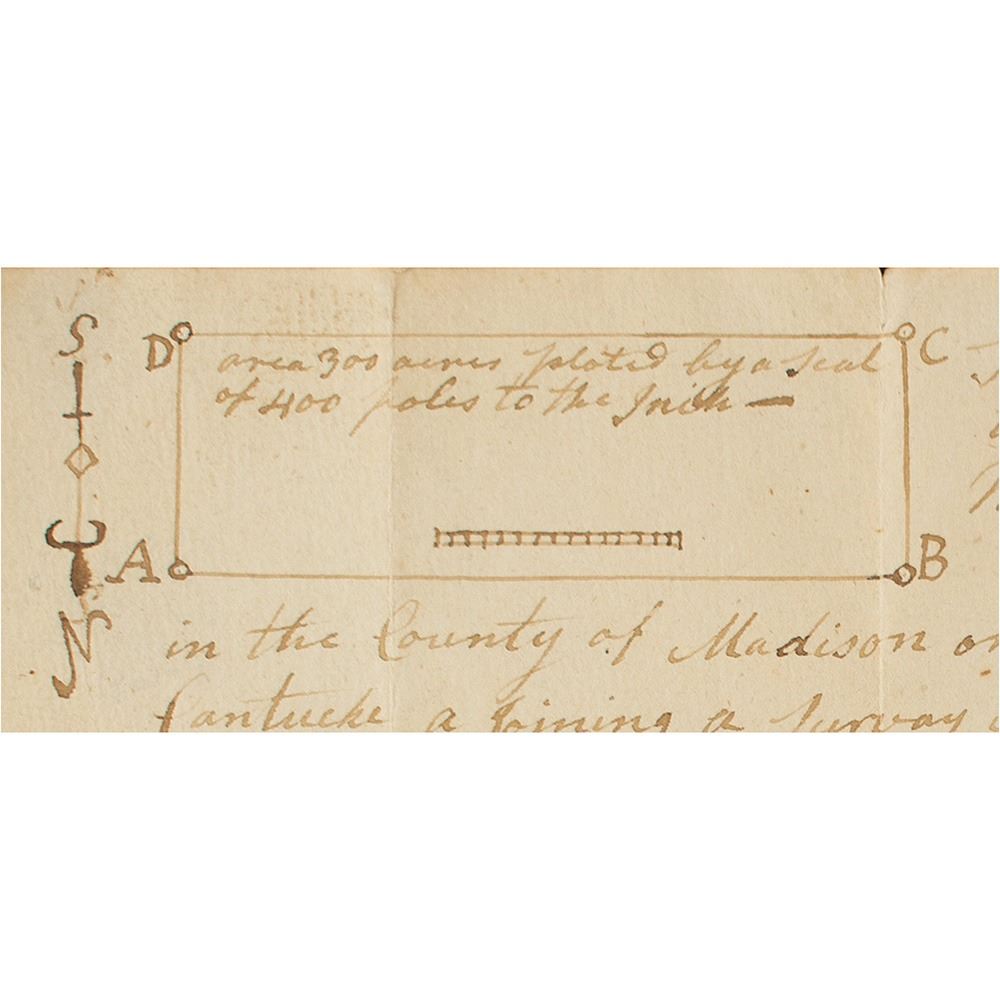 S
D C
area 300 acres plotd by a Scal
of 400 poles to the Inch —
A B
N
in the County of Madison on
Cantucke a Joining a Survay